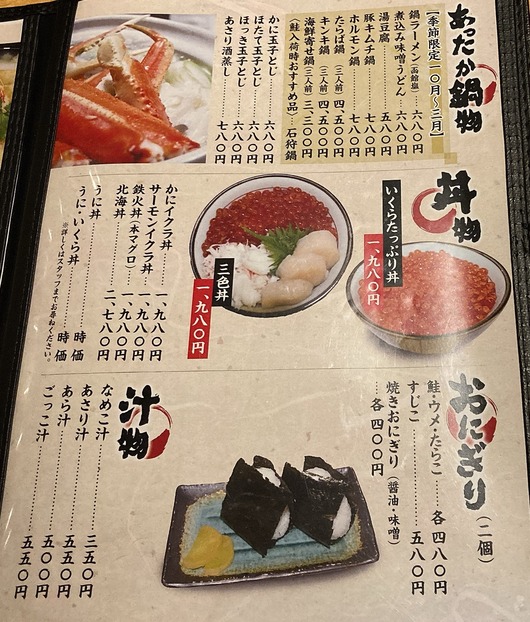 あったか鍋物
【季節限定 一〇月～三月】
鍋ラーメン(函館塩)……六八〇円
煮込み味噌うどん……六八〇円
湯豆腐……五八〇円
豚キムチ鍋……七八〇円
ホルモン鍋……七八〇円
たらば鍋(三人前)四、五〇〇円
キンキ鍋(三人前)四、五〇〇円
海鮮寄せ鍋(三人前)三、三〇〇円
(鮭入荷時おすすめ品)石狩鍋
かに玉子とじ……六八〇円
ほたて玉子とじ……六八〇円
ほっき玉子とじ……六八〇円
あさり酒蒸し……七八〇円
丼物
いくらたっぷり丼
一、九八〇円
三色丼
一、九八〇円
かにイクラ丼……一、九八〇円
サーモンイクラ丼……一、九八〇円
鉄火丼(本マグロ)……一、九八〇円
北海丼……二、七八〇円
うに丼……時価
うに・いくら丼……時価
※詳しくはスタッフまでお尋ねください。
おにぎり(二個)
鮭・ウメ・たらこ……各四八〇円
すじこ……五八〇円
焼きおにぎり(醤油・味噌)
……各四〇〇円
汁物
なめこ汁……三五〇円
あさり汁……五五〇円
あら汁……五〇〇円
ごっこ汁……五五〇円